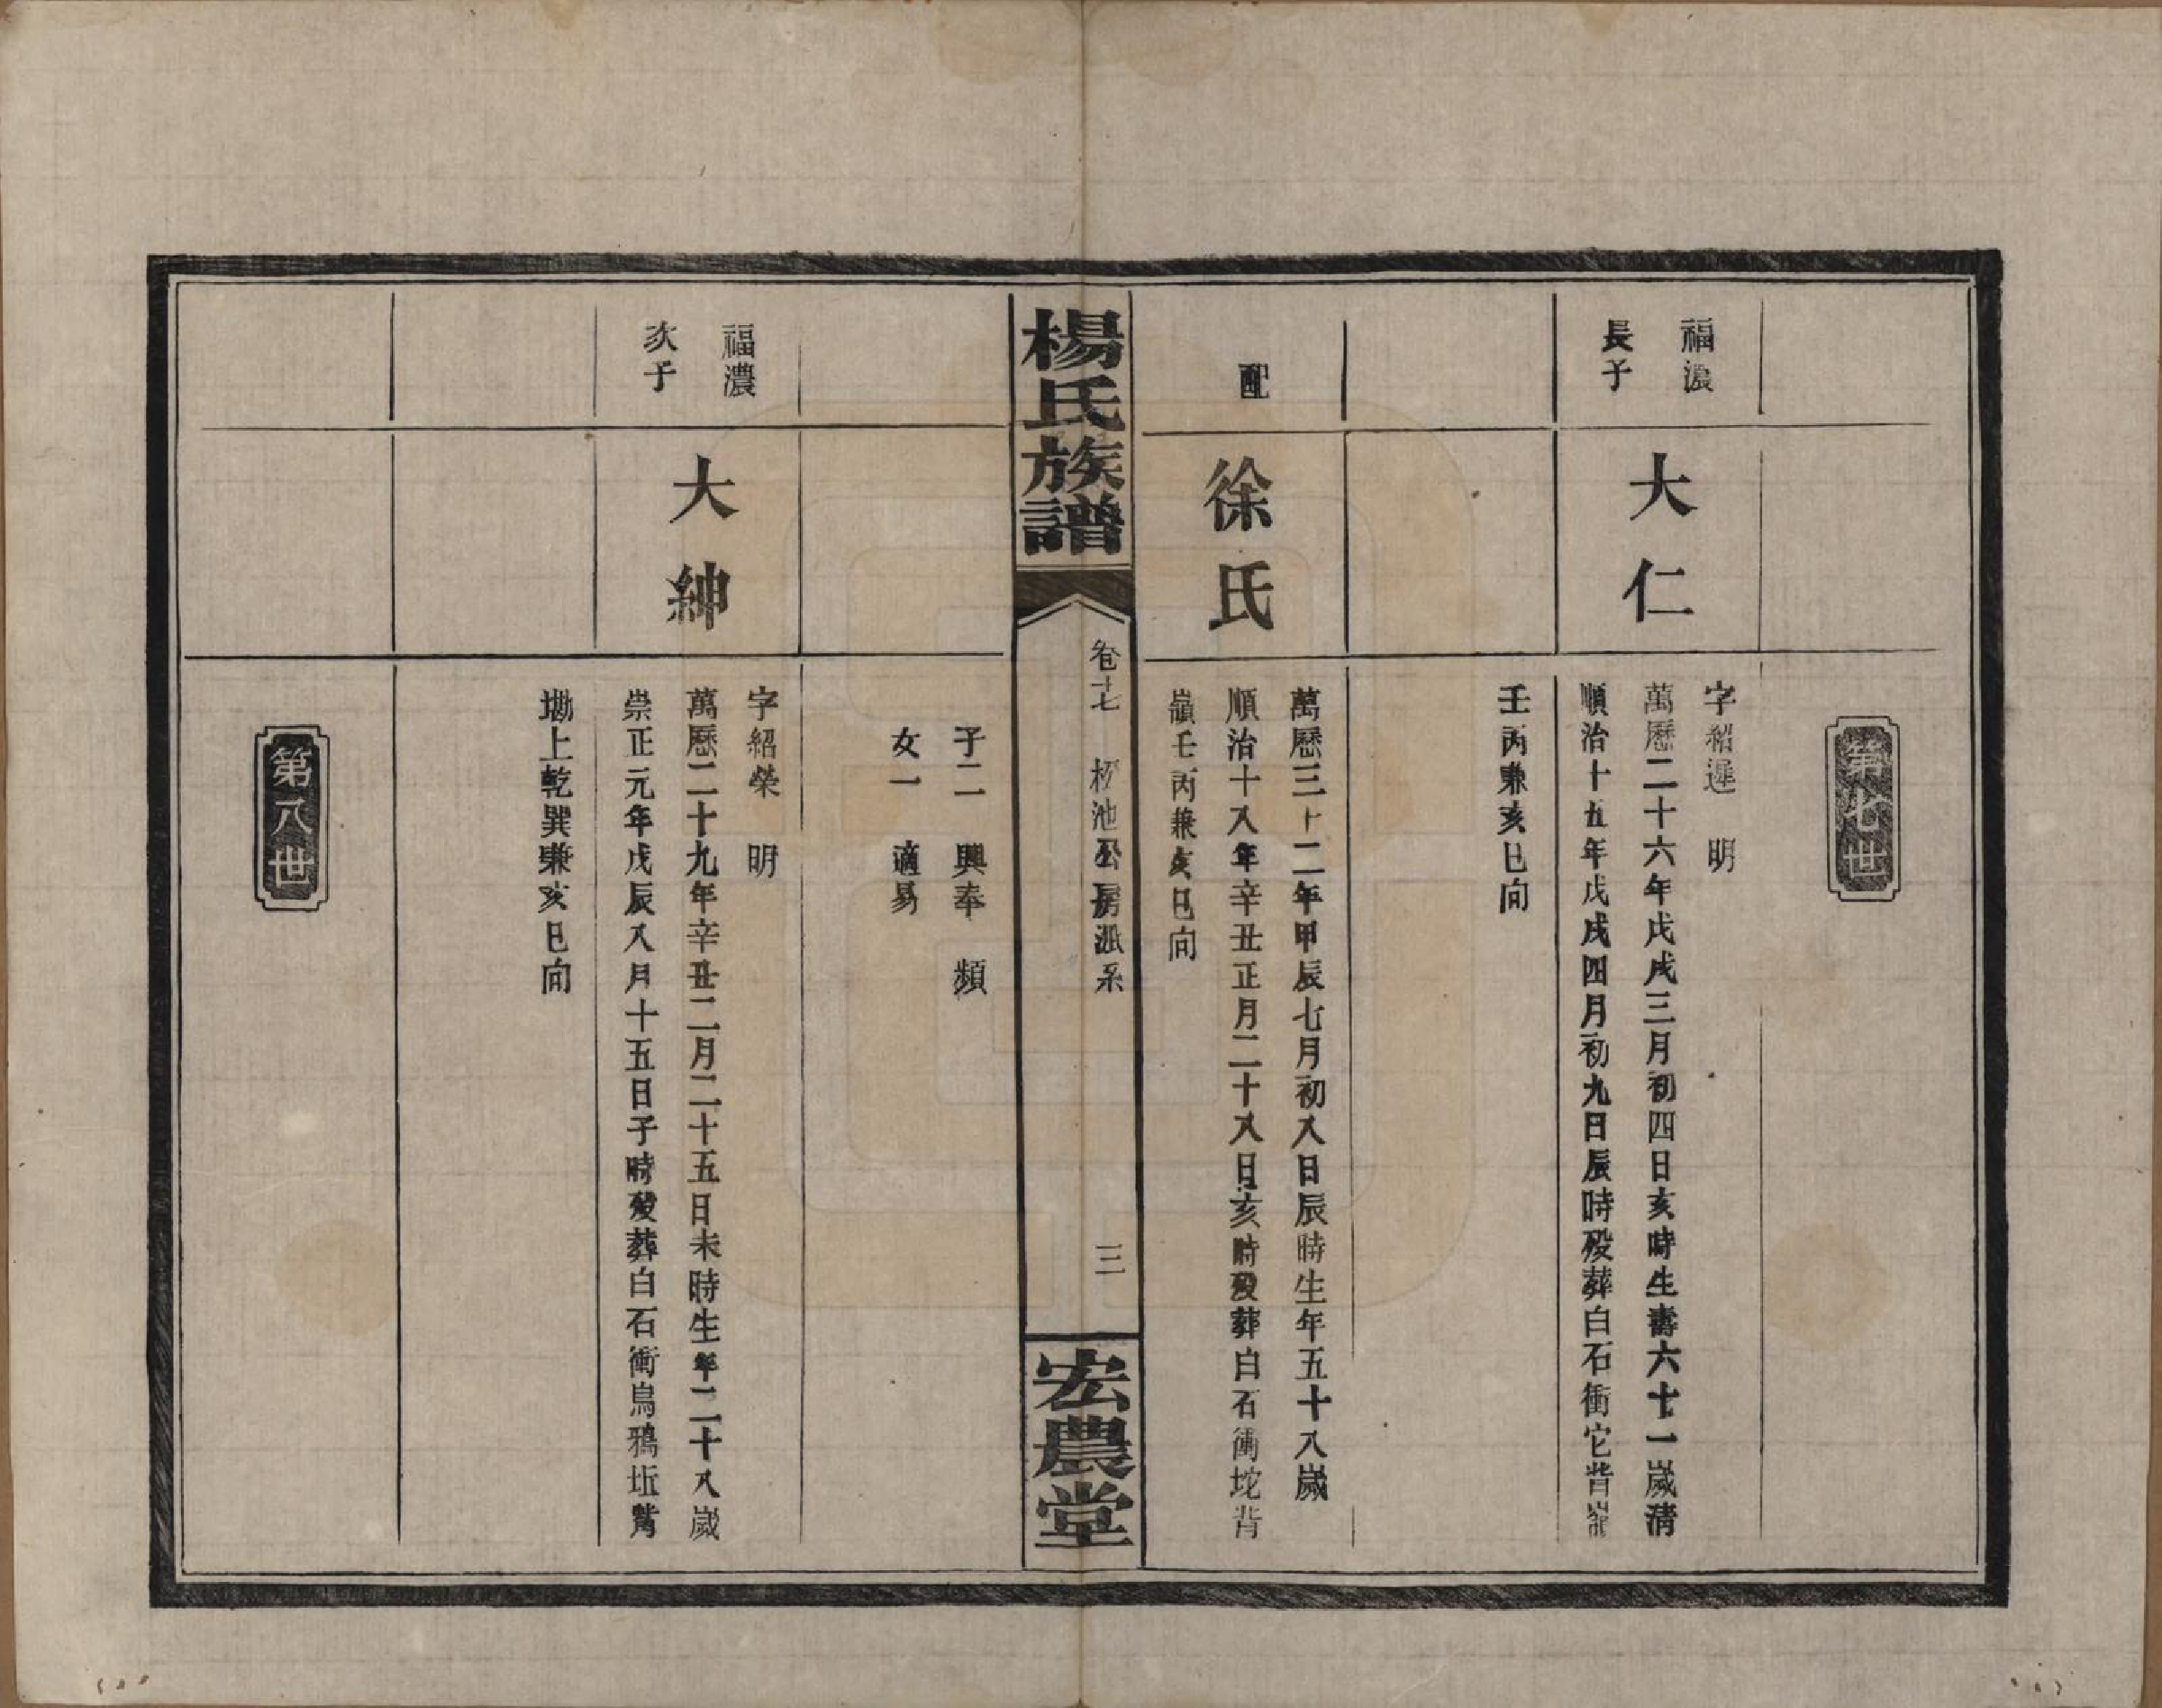 第七世
福濃
長子
大仁
字紹遲　明
萬歷二十六年戊戌三月初四日亥時生壽六十一歲清
順治十五年戊戌四月初九日辰時歿葬白石衝它背嶺
壬丙兼亥巳向
配
徐氏
萬歷三十二年甲辰七月初八日辰時生年五十八歲
順治十八年辛丑正月二十八日亥時歿葬白石衝坨背
嶺壬丙兼亥巳向
楊氏族譜
卷十七　楞池公房派系
三
宏農堂
子二　興奉　頻
女一　適易
福濃
次子
大紳
字紹榮　明
萬歷二十九年辛丑二月二十五日未時生年二十八歲
崇正元年戊辰八月十五日子時歿葬白石衝烏鴉坵嘴
塝上乾巽兼亥巳向
第八世